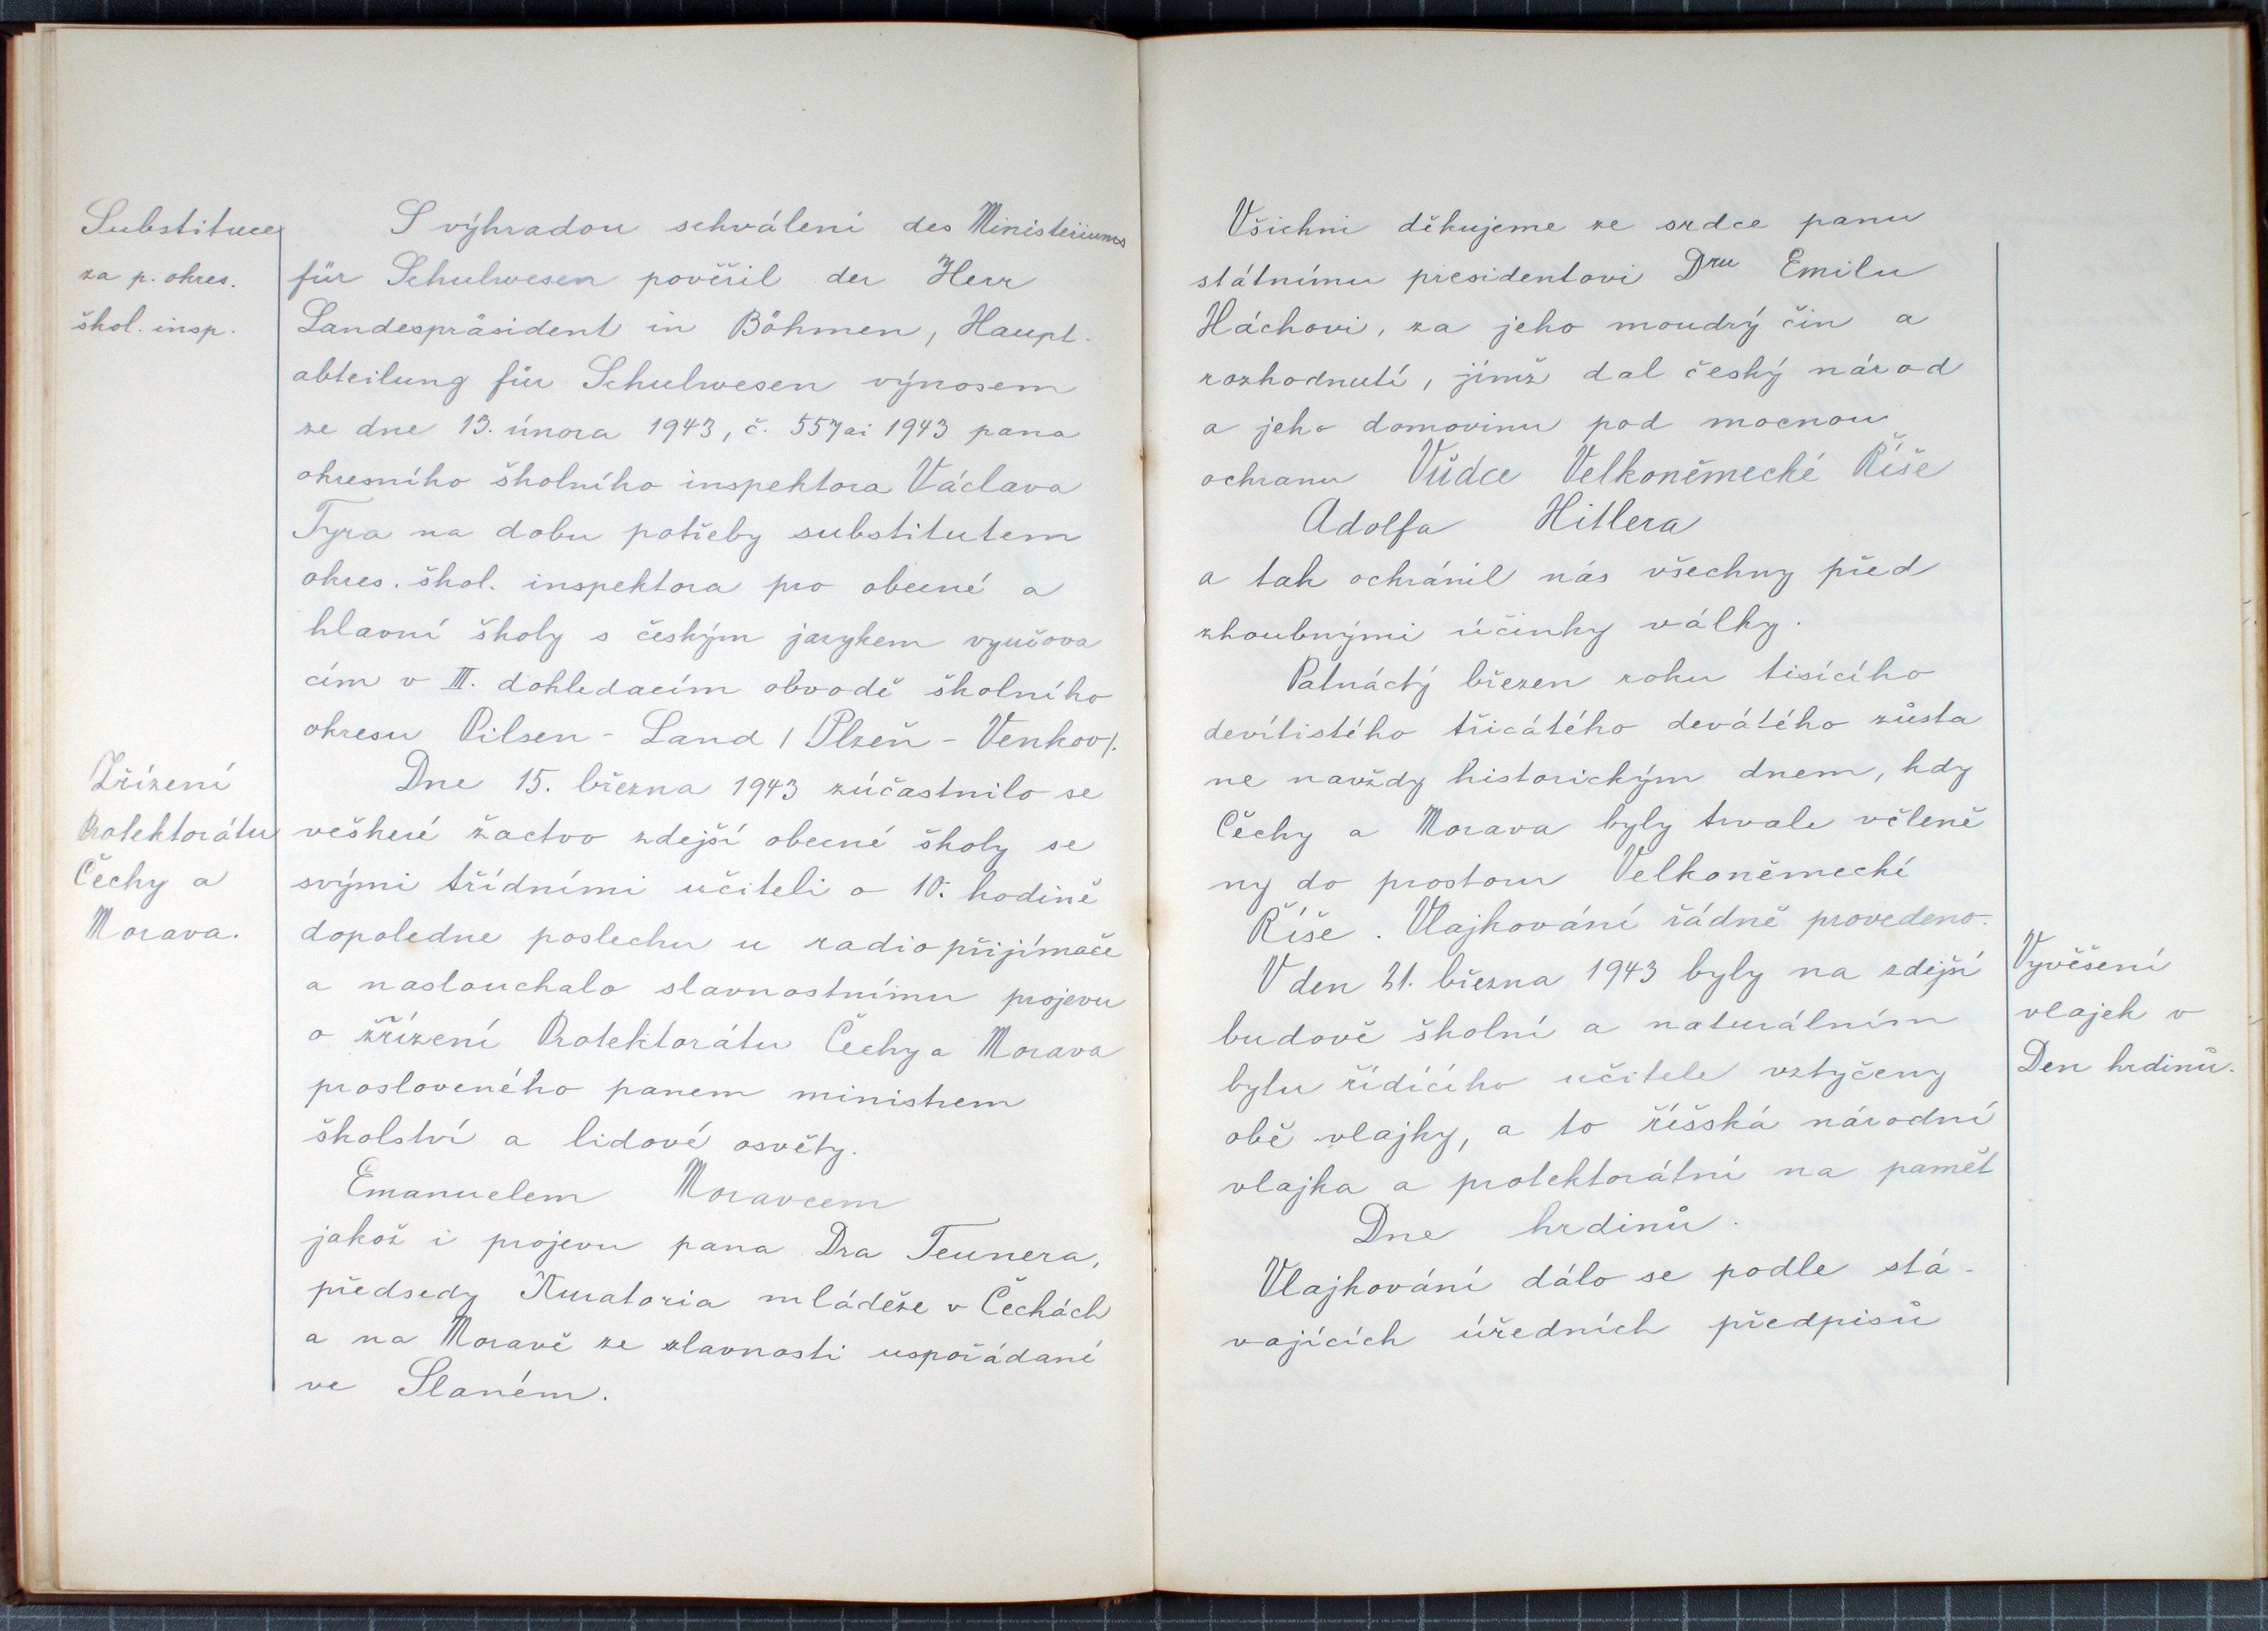 Substituce
za p. okres.
škol. insp.
S výhradou schválení des Ministeriums
für Schulwesen pověřil der Herr
Landespräsident in Böhmen, Haupt-
abteilung für Schulwesen výnosem
ze dne 13. února 1943, č. 557 ai 1943 pana
okresního školního inspektora Václava
Tyra na dobu potřeby substitutem
okres. škol. inspektora pro obecné a
hlavní školy s českým jazykem vyučova
cím v III. dohledacím obvodě školního
okresu Pilsen - Land / Plzeň - Venkov/.
Zřízení
Protektorátu
Čechy a
Morava.
Dne 15. března 1943 zúčastnilo se
veškeré žactvo zdejší obecné školy se
svými třídními učiteli o 10. hodině
dopoledne poslechu u radiopřijímače
a naslouchalo slavnostnímu projevu
o zřízení Protektorátu Čechy a Morava
prosloveného panem ministrem
školství a lidové osvěty.
Emanuelem Moravcem
jakož i projevu pana Dra Teunera,
předsedy Kuratoria mládeže v Čechách
a na Moravě ze slavnosti uspořádané
ve Slaném.
Všichni děkujeme ze srdce panu
státnímu presidentovi Dru Emilu
Háchovi, za jeho moudrý čin a
rozhodnutí, jímž dal český národ
a jeho domovinu pod mocnou
ochranu Vůdce Velkoněmecké Říše
Adolfa Hitlera
a tak ochránil nás všechny před
zhoubnými účinky války.
Patnáctý březen roku tisícího
devítistého třicátého devátého zůsta
ne navždy historickým dnem, kdy
Čechy a Morava byly trvale včleně
ny do prostoru Velkoněmecké
Říše. Vlajkování řádně provedeno.
V den 21. března 1943 byly na zdejší
budově školní a naturálním
bytu řídícího učitele vztyčeny
obě vlajky, a to říšská národní
vlajka a protektorátní na pamět
Dne hrdinů.
Vlajkování dálo se podle stá-
vajících úředních předpisů
Vyvěšení
vlajek v
Den hrdinů.